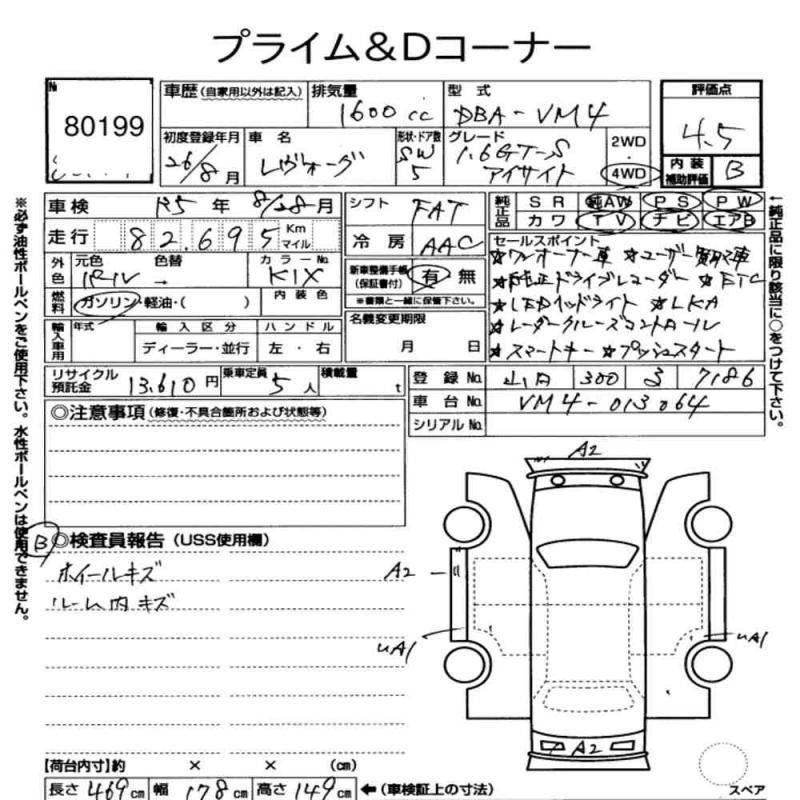 プライム&Dコーナー
№ 80199
車歴 (自家用以外は記入) 排気量 1600cc 型式 DBA-VM4 評価点 4.5
初度登録年月 26/8月 車名 レヴォーグ 形状・ドア数 SW 5 グレード 1.6GT-S アイサイト 2WD 4WD 内装補助評価 B
車検 R5年 8/28月 シフト FAT 純正品 SR 純AW PS PW
走行 82,695 Km マイル 冷房 AAC カワ TV ナビ エアB
外色 元色 色替 カラーNo. 新車整備手帳(保証書付) 有 無 セールスポイント
K1X ※書類と一緒に保管下さい。 ☆ワンオーナー車 ☆ユーザー買取車
燃料 ガソリン・軽油・( ) 内装色 ☆純正ドライブレコーダー ☆ETC
輸入車用 年式 輸入区分 ハンドル 名義変更期限 ☆LEDヘッドライト ☆LKA
ディーラー・並行 左・右 月 日 ☆レーダークルーズコントロール
☆スマートキー ☆プッシュスタート
リサイクル預託金 13,610円 乗車定員 5人 積載量 t 登録No. 300 7186
車台No. VM4-013064
シリアルNo.
◎注意事項 (修復・不具合箇所および状態等)
B ◎検査員報告 (USS使用欄)
ホイールキズ
ルーム内キズ
A2
A2
UA1
UA1
A2
スペア
【荷台内寸】約 × × (cm)
長さ 469cm 幅 178cm 高さ 149cm ←(車検証上の寸法)
※必ず油性ボールペンをご使用下さい。水性ボールペンは使用できません。
←純正品に限り該当に○をつけて下さい。